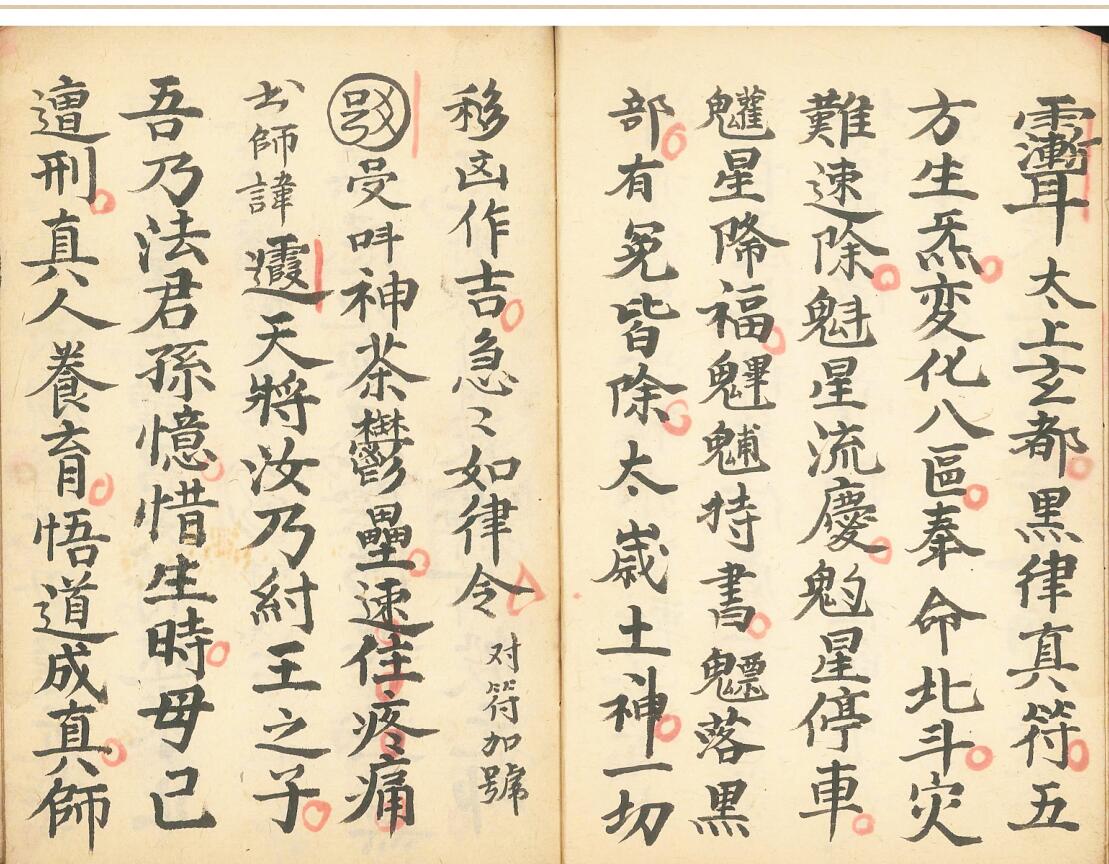 太上玄都黑律真符五
方生炁変化八區奉命北斗灾
難速除魁星流慶星停車
星降福魓特書魒落黑
部有冤皆除太歲土神一切
移凶作吉急〻如律令
对符加號
受叫神荼鬱壘速住疼痛
出師諱
天將汝乃紂王之子
吾乃法君孫憶惜生時母已
遭刑真人養育悟道成真師